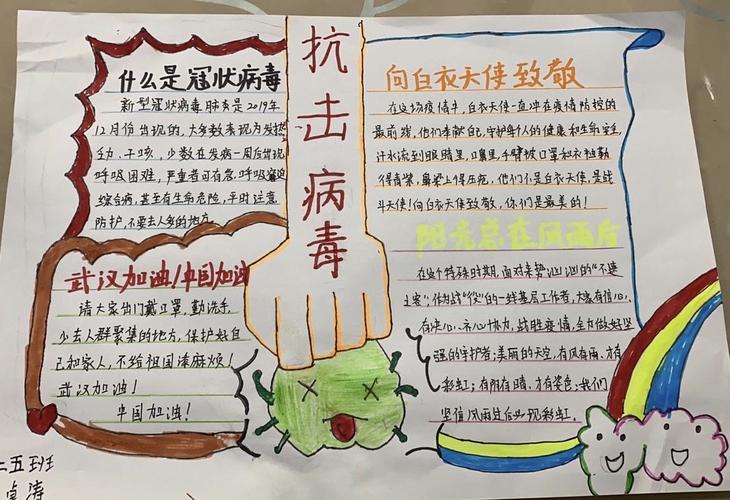 抗击病毒
什么是冠状病毒
新型冠状病毒肺炎是2019年
12月份出现的,大多数表现为发热
乏力、干咳,少数在发病一周后出现
呼吸困难,严重者可有急呼吸窘迫
综合病,甚至有生命危险,平时注意
防护,不要去人多的地方
武汉加油!中国加油
请大家出门戴口罩,勤洗手,
少去人群聚集的地方,保护好自
己和家人,不给祖国添麻烦!
武汉加油!
中国加油!
向白衣天使致敬
在这场疫情中,白衣天使一直冲在疫情防控的
最前线,他们奉献自己,守护每个人的健康和生命安全,
汗水流到眼睛里、嘴里,手臂被口罩和衣袖勒
得青紫,鼻梁上得压疮,他们不是白衣天使,是战
斗天使!向白衣天使致敬,你们是最美的!
阳光总在风雨后
在这个特殊时期,面对来势汹汹的“不速
之客”,作为战“役”的一线基层工作者,大家有信心、
有决心、齐心协力,战胜疫情,全力做好坚
强的守护者;美丽的天空,有风有雨,才有
彩虹;有阴有晴,才有姿色;我们
坚信风雨过后必现彩虹.
二五班
卓涛